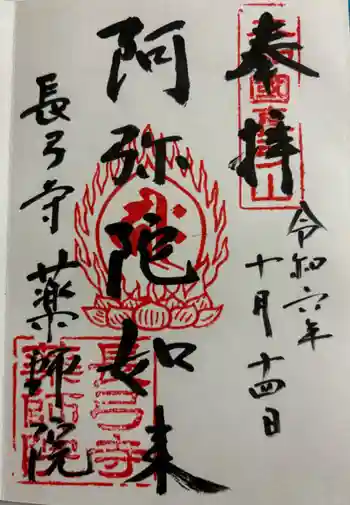 奉拝
令和六年
十月十四日
阿弥陀如来
長弓寺薬師院
長弓寺
薬師院